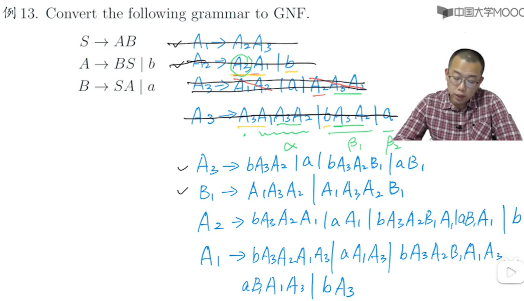 例 13. Convert the following grammar to GNF.
中国大学MOOC
S → AB
A → BS | b
B → SA | a
A₁ → A₂A₃
A₂ → A₃A₁ | b
A₃ → A₁A₂ | a | A₂A₃A₂
A₃ → A₃A₁A₃A₂ | bA₃A₂ | a
α β₁ β₂
A₃ → bA₃A₂ | a | bA₃A₂B₁ | aB₁
B₁ → A₁A₃A₂ | A₁A₃A₂B₁
A₂ → bA₃A₂A₁ | aA₁ | bA₃A₂B₁A₁ | aB₁A₁ | b
A₁ → bA₃A₂A₁A₃ | aA₁A₃ | bA₃A₂B₁A₁A₃
aB₁A₁A₃ | bA₃